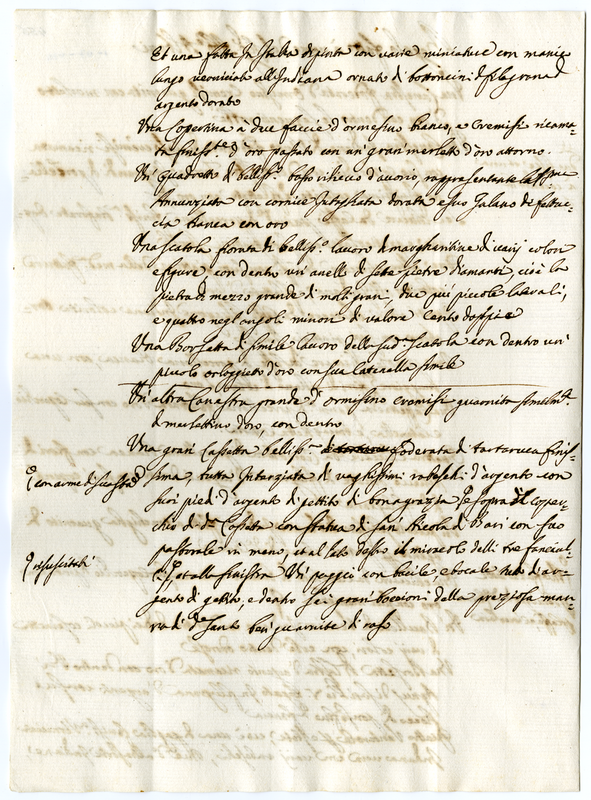 Et una folta In Stalla dipinta con varie miniature con manico
lungo verniciato all'Indiana ornato di bottoncini di filagrana d
argento dorato
Una Copertina à due faccie d'ormesino bianco, e Cremisi ricama-
ta finiss.e d'oro passato con un gran merletto d'oro attorno.
Un quadretto di belliss.o basso rilievo d'avorio, rappresentante la SS.ma
Annunziata con cornice Intagliata dorata e suo di fettuc-
cia bianca con oro
Una Scatola fiorata di belliss.o lavoro di margheritine di varij colori
e figure, con dentro un' anello di sette pietre diamanti, cioè la
pietra di mezzo grande di molti grani, due più piccole laterali,
e quattro negl'angoli minori di valore Cento doppie
Una Borsetta di simile lavoro della sud.a Scatola con dentro un
piccolo orloggietto d'oro con sua Catenella simile
Un' altra Canestra grande d'ormesino Cremisi guarnita similm.te
di merlettino d'oro, con dentro
Una gran Cassetta belliss.a foderata di tartaruca finis-
con arme di sua
sima, tutta Intarziata di vaghissimi rabeschi d'argento con
suoi piedi d'argento di gettito di bona grazza e sopra il coper-
chio di d.a Cassetta con statua di san Nicola di Bari con suo
pastorale in mano, et al lato destro il miracolo delli tre fanciul-
resuscitati
li et alla sinistra Un paggio con bacile, e bocale tutto di ar-
gento di gettito, e dentro sei gran boccioni della preziosa man-
na di d.o Santo ben guarnite di raso